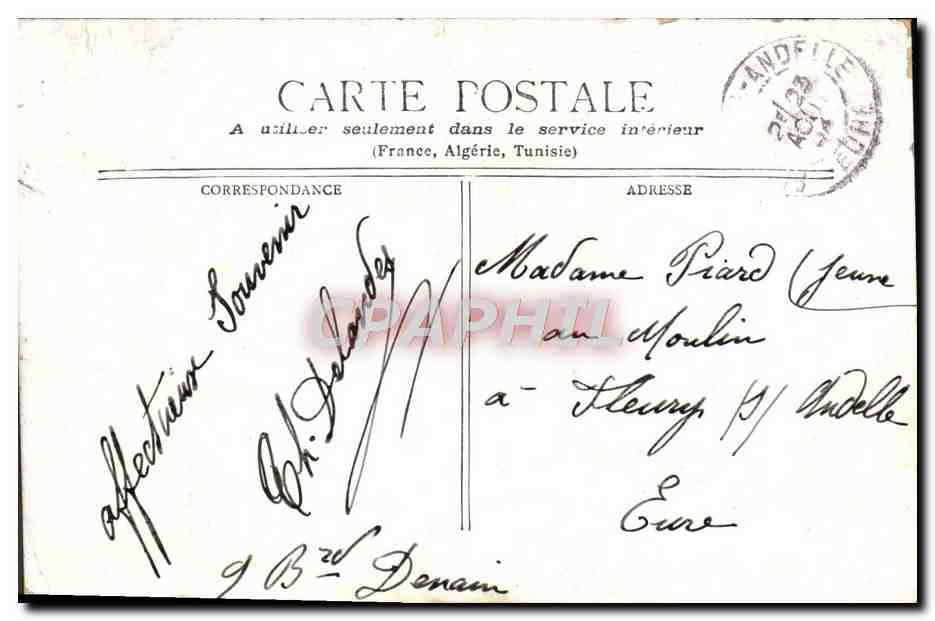 CARTE POSTALE
A utiliser seulement dans le service intérieur
(France, Algérie, Tunisie)
CORRESPONDANCE
ADRESSE
affectueux Souvenir
Ch. Delandes
9 Bred Denain
Madame Piard (jeune
au Moulin
à Fleury /s/ Andelle
Eure
-ANDELLE
23
AOUT
EURE
CPAPHIL